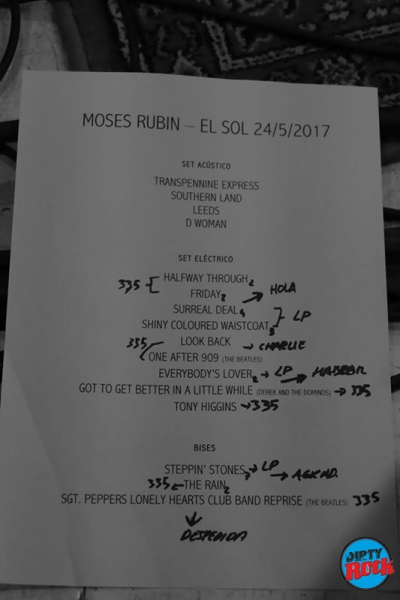 MOSES RUBIN — EL SOL 24/5/2017
SET ACÚSTICO
TRANSPENNINE EXPRESS
SOUTHERN LAND
LEEDS
D WOMAN
SET ELÉCTRICO
335 [ HALFWAY THROUGH 2
FRIDAY 2 → HOLA
SURREAL DEAL 4 } LP
SHINY COLOURED WAISTCOAT
335 LOOK BACK → CHARLIE
ONE AFTER 909 (THE BEATLES)
EVERYBODY'S LOVER 2 → LP →
GOT TO GET BETTER IN A LITTLE WHILE (DEREK AND THE DOMINOS) → 335
TONY HIGGINS → 335
BISES
STEPPIN' STONES → LP →
335 ← THE RAIN 2
SGT. PEPPERS LONELY HEARTS CLUB BAND REPRISE (THE BEATLES) 335
↓
DESPEDIDA
DIRTY
Rock